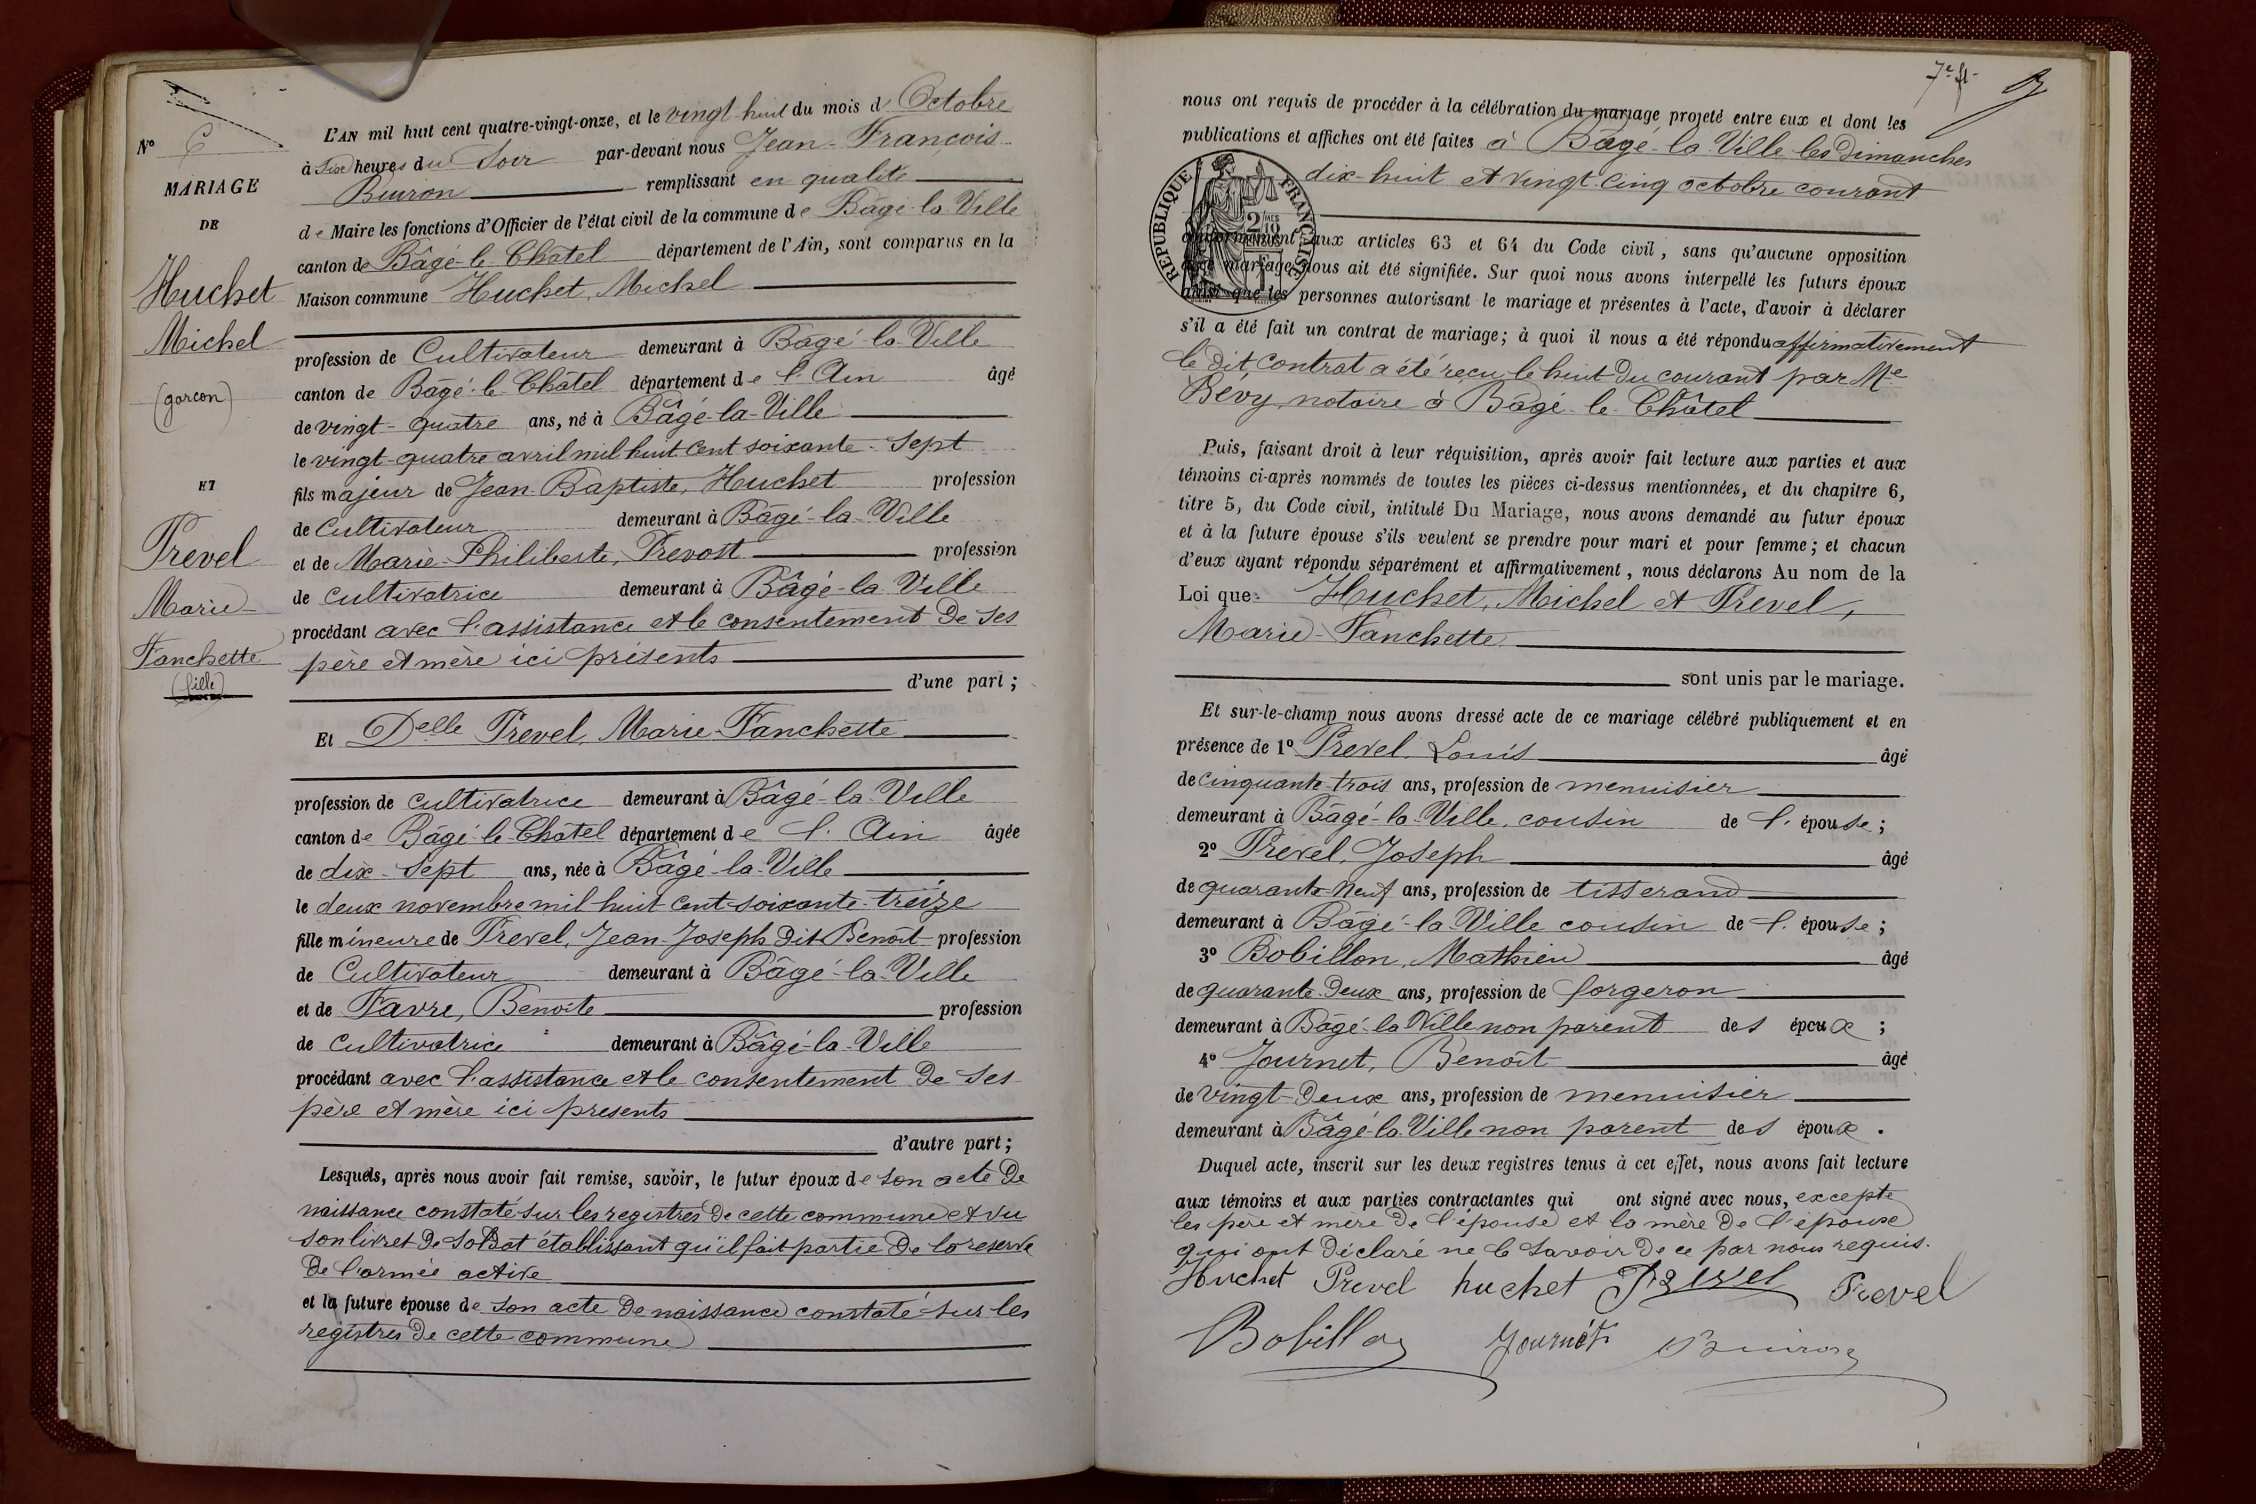 N° 6
MARIAGE
DE
Huchet
Michel
(garçon)
ET
Prevel
Marie
Fanchette
(fille)
L'AN mil huit cent quatre-vingt-onze, et le vingt-huit du mois d'Octobre
à Six heures du Soir par-devant nous Jean-François
Buiron remplissant en qualité
de Maire les fonctions d'Officier de l'état civil de la commune de Bâgé-la-Ville
canton de Bâgé-le-Châtel département de l'Ain, sont comparus en la
Maison commune Huchet, Michel
profession de Cultivateur demeurant à Bâgé-la-Ville
canton de Bâgé-le-Châtel département de l'Ain âgé
de vingt-quatre ans, né à Bâgé-la-Ville
le vingt-quatre avril mil huit cent soixante-sept
fils majeur de Jean-Baptiste, Huchet profession
de Cultivateur demeurant à Bâgé-la-Ville
et de Marie-Philiberte, Prevost profession
de cultivatrice demeurant à Bâgé-la-Ville
procédant avec l'assistance et le consentement de ses
père et mère ici présents
d'une part;
Et Delle Prevel, Marie-Fanchette
profession de cultivatrice demeurant à Bâgé-la-Ville
canton de Bâgé-le-Châtel département de l'Ain âgée
de dix-sept ans, née à Bâgé-la-Ville
le deux novembre mil huit-cent-soixante-treize
fille mineure de Prevel, Jean-Joseph dit Benoît profession
de Cultivateur demeurant à Bâgé-la-Ville
et de Favre, Benoîte profession
de cultivatrice demeurant à Bâgé-la-Ville
procédant avec l'assistance et le consentement de ses
père et mère ici présents
d'autre part;
Lesquels, après nous avoir fait remise, savoir, le futur époux de son acte de
naissance constaté sur les registres de cette commune et vu
son livret de soldat établissant qu'il fait partie de la reserve
de l'armée active
et la future épouse de son acte de naissance constaté sur les
registres de cette commune
7e ft
nous ont requis de procéder à la célébration du mariage projeté entre eux et dont les
publications et affiches ont été faites à Bâgé-la-Ville les dimanches
dix-huit et vingt-cinq octobre courant
RÉPUBLIQUE FRANÇAISE
2/10 MES
EN SUS
conformément aux articles 63 et 64 du Code civil, sans qu'aucune opposition
audit mariage nous ait été signifiée. Sur quoi nous avons interpellé les futurs époux
ainsi que les personnes autorisant le mariage et présentes à l'acte, d'avoir à déclarer
s'il a été fait un contrat de mariage; à quoi il nous a été répondu affirmativement
le dit contrat a été reçu le huit du courant par Me
Bévy, notaire à Bâgé-le-Châtel
Puis, faisant droit à leur réquisition, après avoir fait lecture aux parties et aux
témoins ci-après nommés de toutes les pièces ci-dessus mentionnées, et du chapitre 6,
titre 5, du Code civil, intitulé Du Mariage, nous avons demandé au futur époux
et à la future épouse s'ils veulent se prendre pour mari et pour femme; et chacun
d'eux ayant répondu séparément et affirmativement, nous déclarons Au nom de la
Loi que Huchet, Michel et Prevel,
Marie-Fanchette
sont unis par le mariage.
Et sur-le-champ nous avons dressé acte de ce mariage célébré publiquement et en
présence de 1° Prevel, Louis âgé
de cinquante-trois ans, profession de menuisier
demeurant à Bâgé-la-Ville, cousin de l'épouse;
2° Prevel, Joseph âgé
de quarante-neuf ans, profession de tisserand
demeurant à Bâgé-la-Ville cousin de l'épouse;
3° Bobillon, Mathieu âgé
de quarante-deux ans, profession de forgeron
demeurant à Bâgé-la-Ville non parent des époux;
4° Journet, Benoît âgé
de vingt-deux ans, profession de menuisier
demeurant à Bâgé-la-Ville non parent des époux.
Duquel acte, inscrit sur les deux registres tenus à cet effet, nous avons fait lecture
aux témoins et aux parties contractantes qui ont signé avec nous, excepté
les père et mère de l'épouse et la mère de l'époux
qui ont déclaré ne le savoir de ce par nous requis.
Huchet Prevel huchet Prevel Prevel
Bobillon Journet Buiron